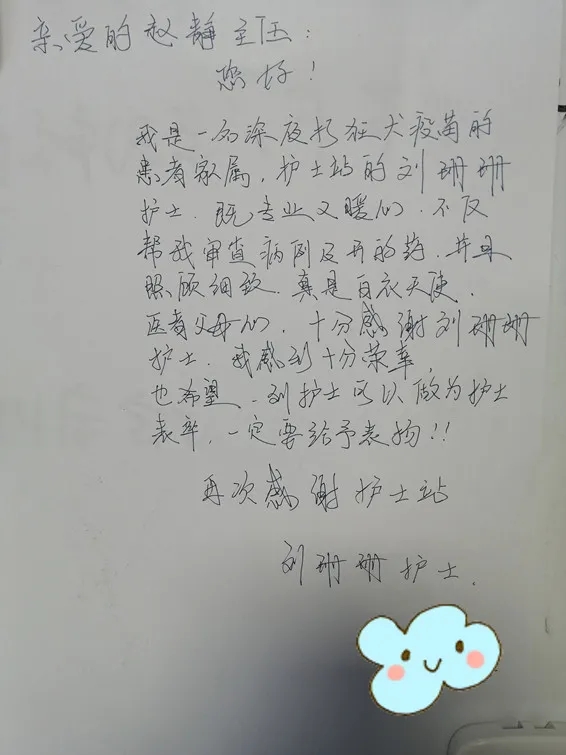 亲爱的赵静主任：
您好！
我是一名深夜打狂犬疫苗的
患者家属，护士站的刘珊珊
护士，既专业又暖心，不仅
帮我审查病例及开的药，并且
照顾细致，真是白衣天使，
医者父母心，十分感谢刘珊珊
护士，我感到十分荣幸，
也希望，刘护士可以做为护士
表率，一定要给予表扬！！
再次感谢护士站
刘珊珊护士．